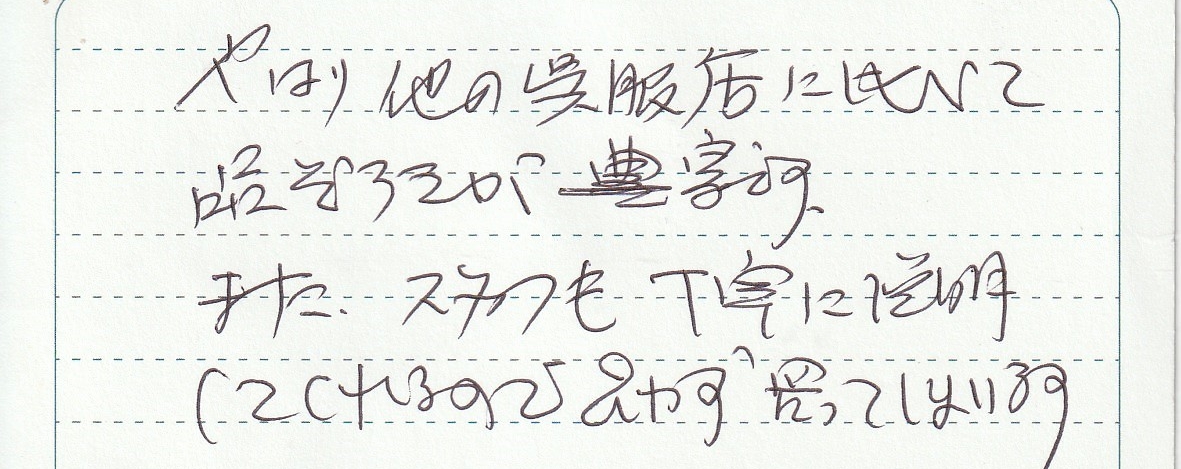 やはり他の呉服店に比べて
品ぞろえが豊富で、
また、スタッフも丁寧に説明
してくれるので必ず買ってしまいます